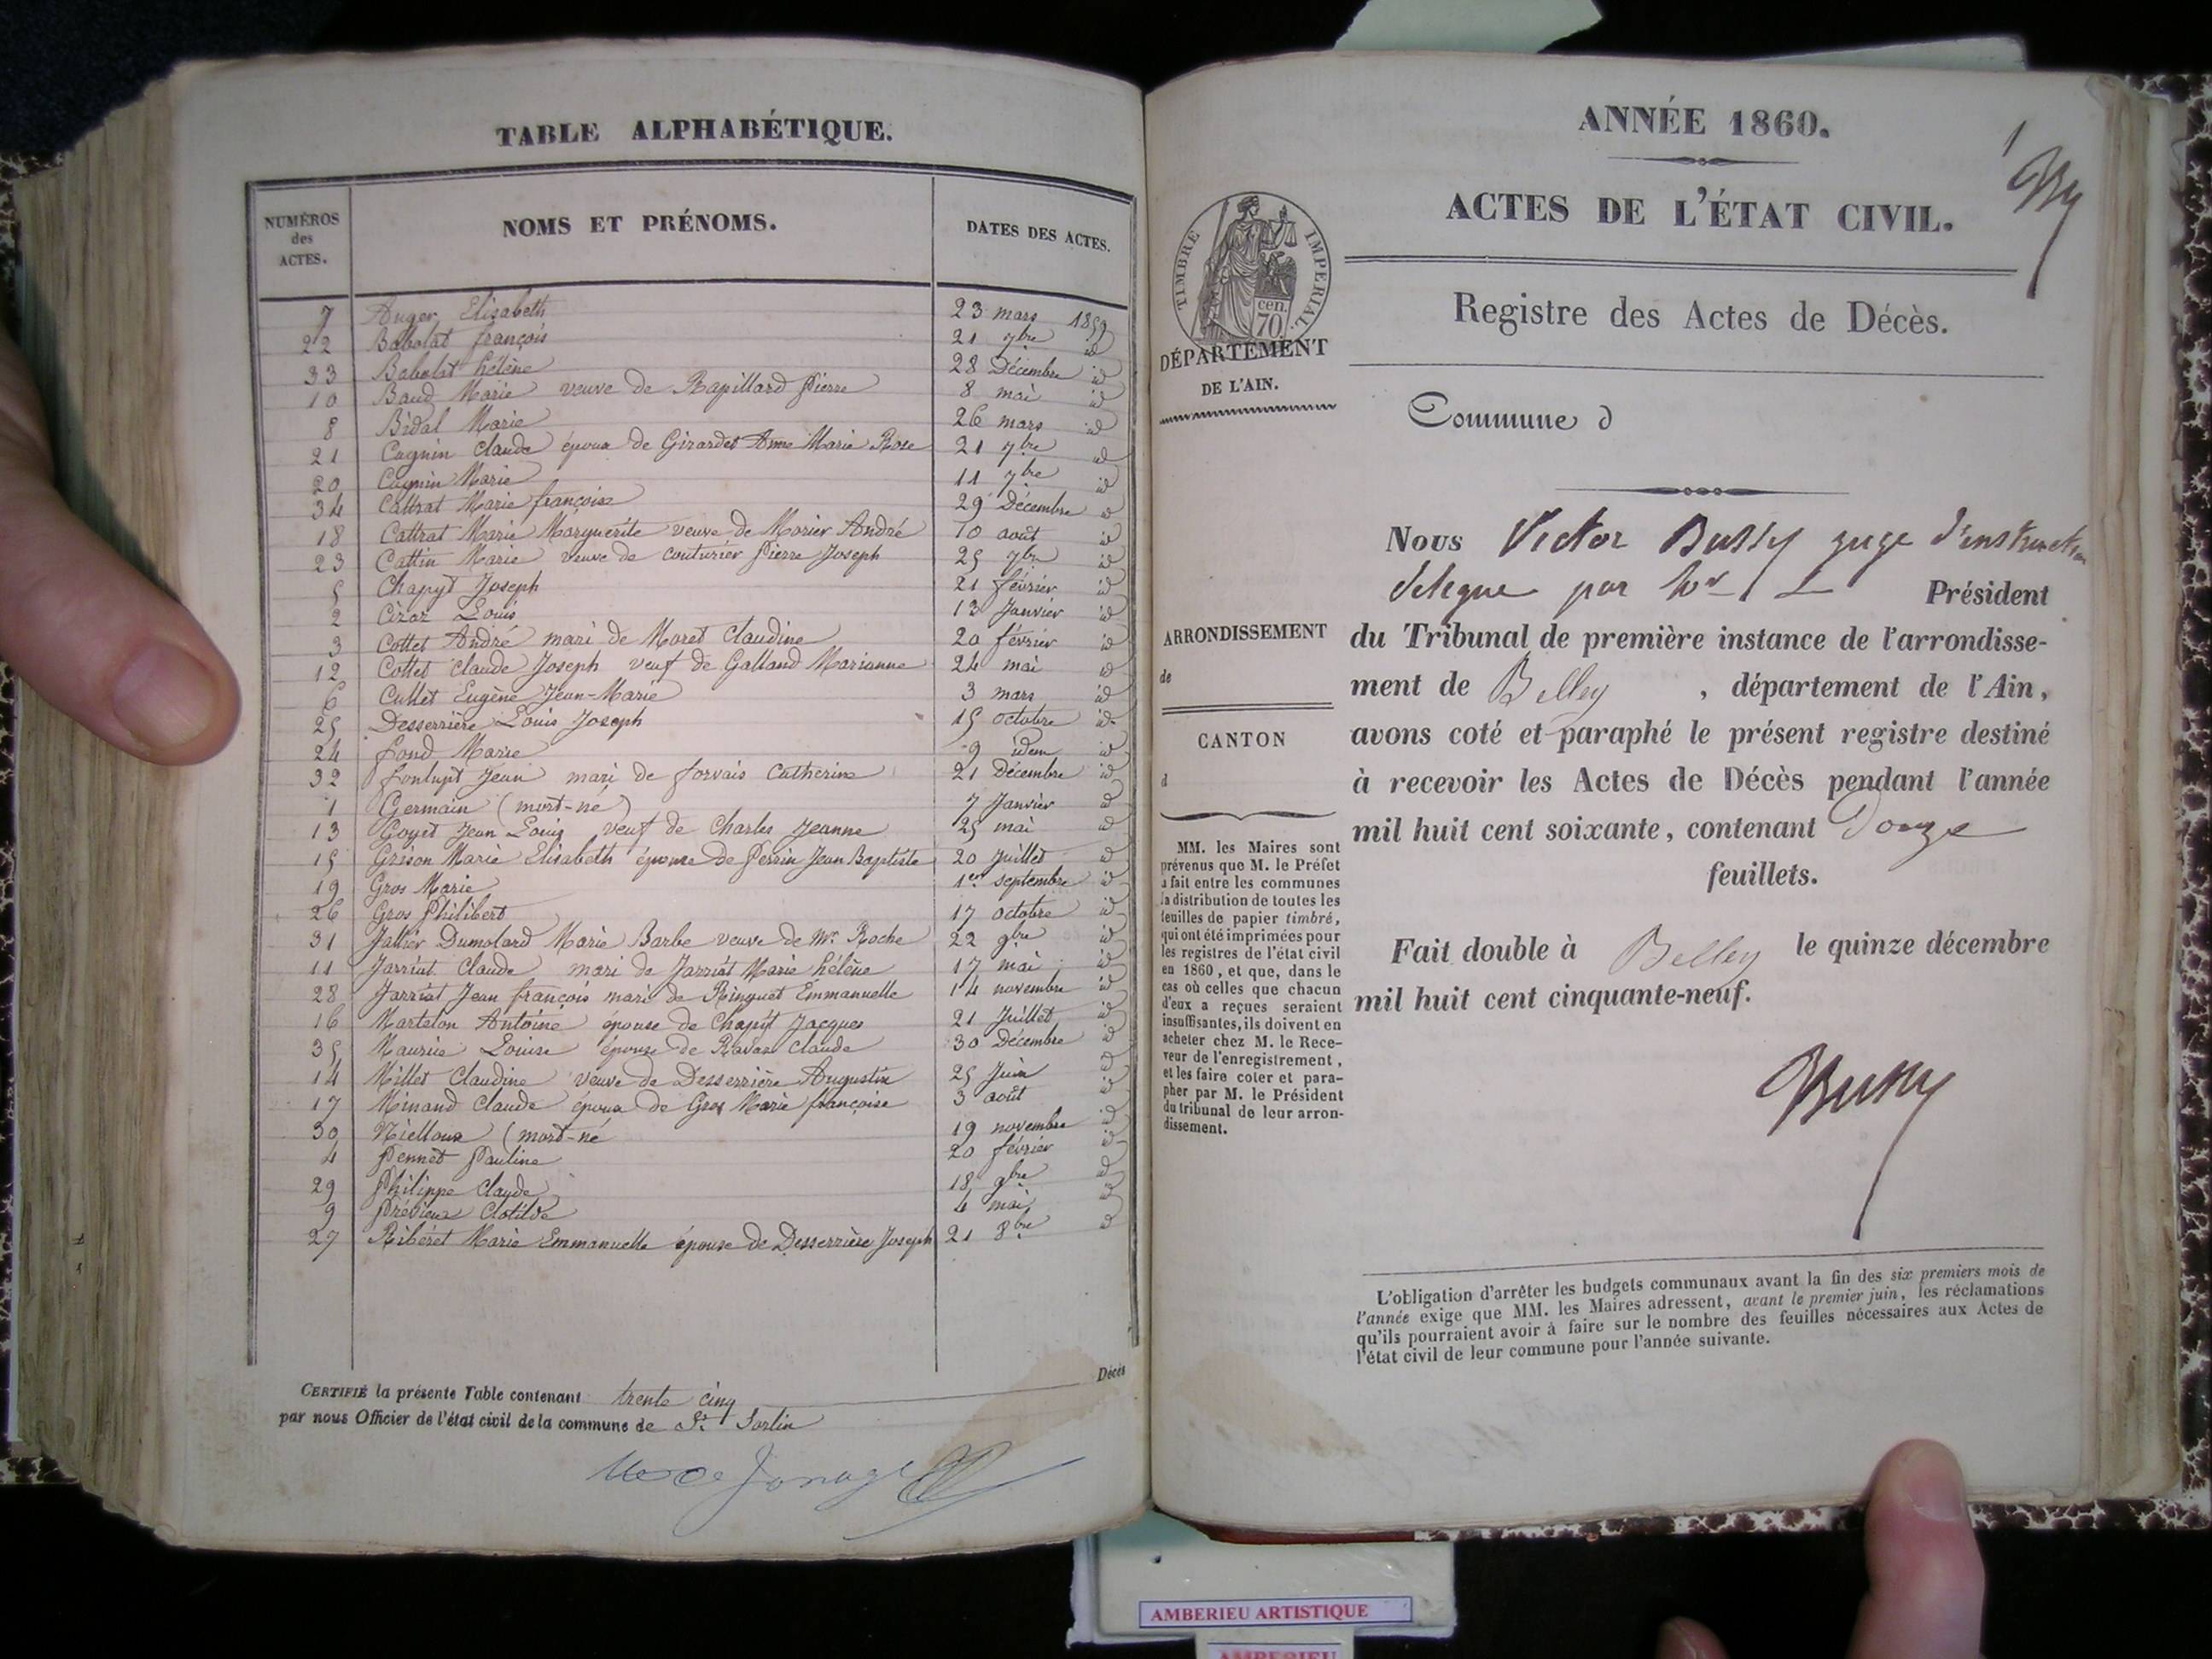 TABLE ALPHABÉTIQUE.
NUMÉROS des ACTES. NOMS ET PRÉNOMS. DATES DES ACTES.
7 Auger Elisabeth 23 mars 1859
22 Babolat françois 21 7bre id
33 Babolat hélène 28 Décembre id
10 Baud Marie veuve de Rapillard Pierre 8 mai id
8 Bidal Marie 26 mars id
21 Cagnin Claude époux de Girardet Anne Marie Rose 21 7bre id
20 Cagnin Marie 11 7bre id
34 Cattrat Marie françoise 29 Décembre id
18 Cattrat Marie Marguerite veuve de Morier André 10 août id
23 Cattin Marie veuve de couturier Pierre Joseph 25 7bre id
5 Chapyt Joseph 21 février id
2 Louis 13 Janvier id
3 Cottet André mari de Moret Claudine 20 février id
12 Cottet Claude Joseph veuf de Galland Marianne 24 mai id
6 Cullet Eugène Jean-Marie 3 mars id
25 Desserrière Louis Joseph 15 octobre id
24 fond Marie 9 idem id
32 fontupt Jean mari de forvais Catherine 21 Décembre id
1 Germain (mort-né) 7 Janvier id
13 Goyet Jean Louis veuf de Charles Jeanne 25 mai id
15 Grison Marie Elisabeth épouse de Perrin Jean Baptiste 20 Juillet id
19 Gros Marie 1er septembre id
26 Gros Philibert 17 octobre id
31 Jallier Dumolard Marie Barbe veuve de Mr Roche 22 9bre id
11 Jarriat Claude mari de Jarriat Marie hélène 17 mai id
28 Jarriat Jean françois mari de Ringuet Emmanuelle 14 novembre id
16 Martelon Antoine épouse de Chapyt Jacques 21 Juillet id
35 Maurice Louise épouse de Ravaz Claude 30 Décembre id
14 Millet Claudine veuve de Desserrière Augustin 25 Juin id
17 Minand Claude époux de Gros Marie françoise 3 août id
30 Nielloux (mort-né 19 novembre id
4 Pennet Pauline 20 février id
29 Philippe Claude 18 9bre id
9 Prévieux Clotilde 4 mai id
27 Ribéret Marie Emmanuelle épouse de Desserrière Joseph 21 8bre id
Décès
CERTIFIÉ la présente Table contenant trente cinq
par nous Officier de l'état civil de la commune de St Sorlin
de Jonage
ANNÉE 1860.
1
ACTES DE L'ÉTAT CIVIL.
TIMBRE IMPÉRIAL.
70 cen.
Registre des Actes de Décès.
DÉPARTEMENT
DE L'AIN.
Commune d
Nous Victor Bussy juge d'instruction
délégué par Mr Le Président
ARRONDISSEMENT
de
du Tribunal de première instance de l'arrondisse-
ment de Belley , département de l'Ain,
CANTON
d
avons coté et paraphé le présent registre destiné
à recevoir les Actes de Décès pendant l'année
mil huit cent soixante, contenant Douze
feuillets.
MM. les Maires sont
prévenus que M. le Préfet
a fait entre les communes
la distribution de toutes les
feuilles de papier timbré,
qui ont été imprimées pour
les registres de l'état civil
en 1860, et que, dans le
cas où celles que chacun
d'eux a reçues seraient
insuffisantes, ils doivent en
acheter chez M. le Rece-
veur de l'enregistrement,
et les faire coter et para-
pher par M. le Président
du tribunal de leur arron-
dissement.
Fait double à Belley le quinze décembre
mil huit cent cinquante-neuf.
Bussy
L'obligation d'arrêter les budgets communaux avant la fin des six premiers mois de
l'année exige que MM. les Maires adressent, avant le premier juin, les réclamations
qu'ils pourraient avoir à faire sur le nombre des feuilles nécessaires aux Actes de
l'état civil de leur commune pour l'année suivante.
AMBERIEU ARTISTIQUE
AMBERIEU